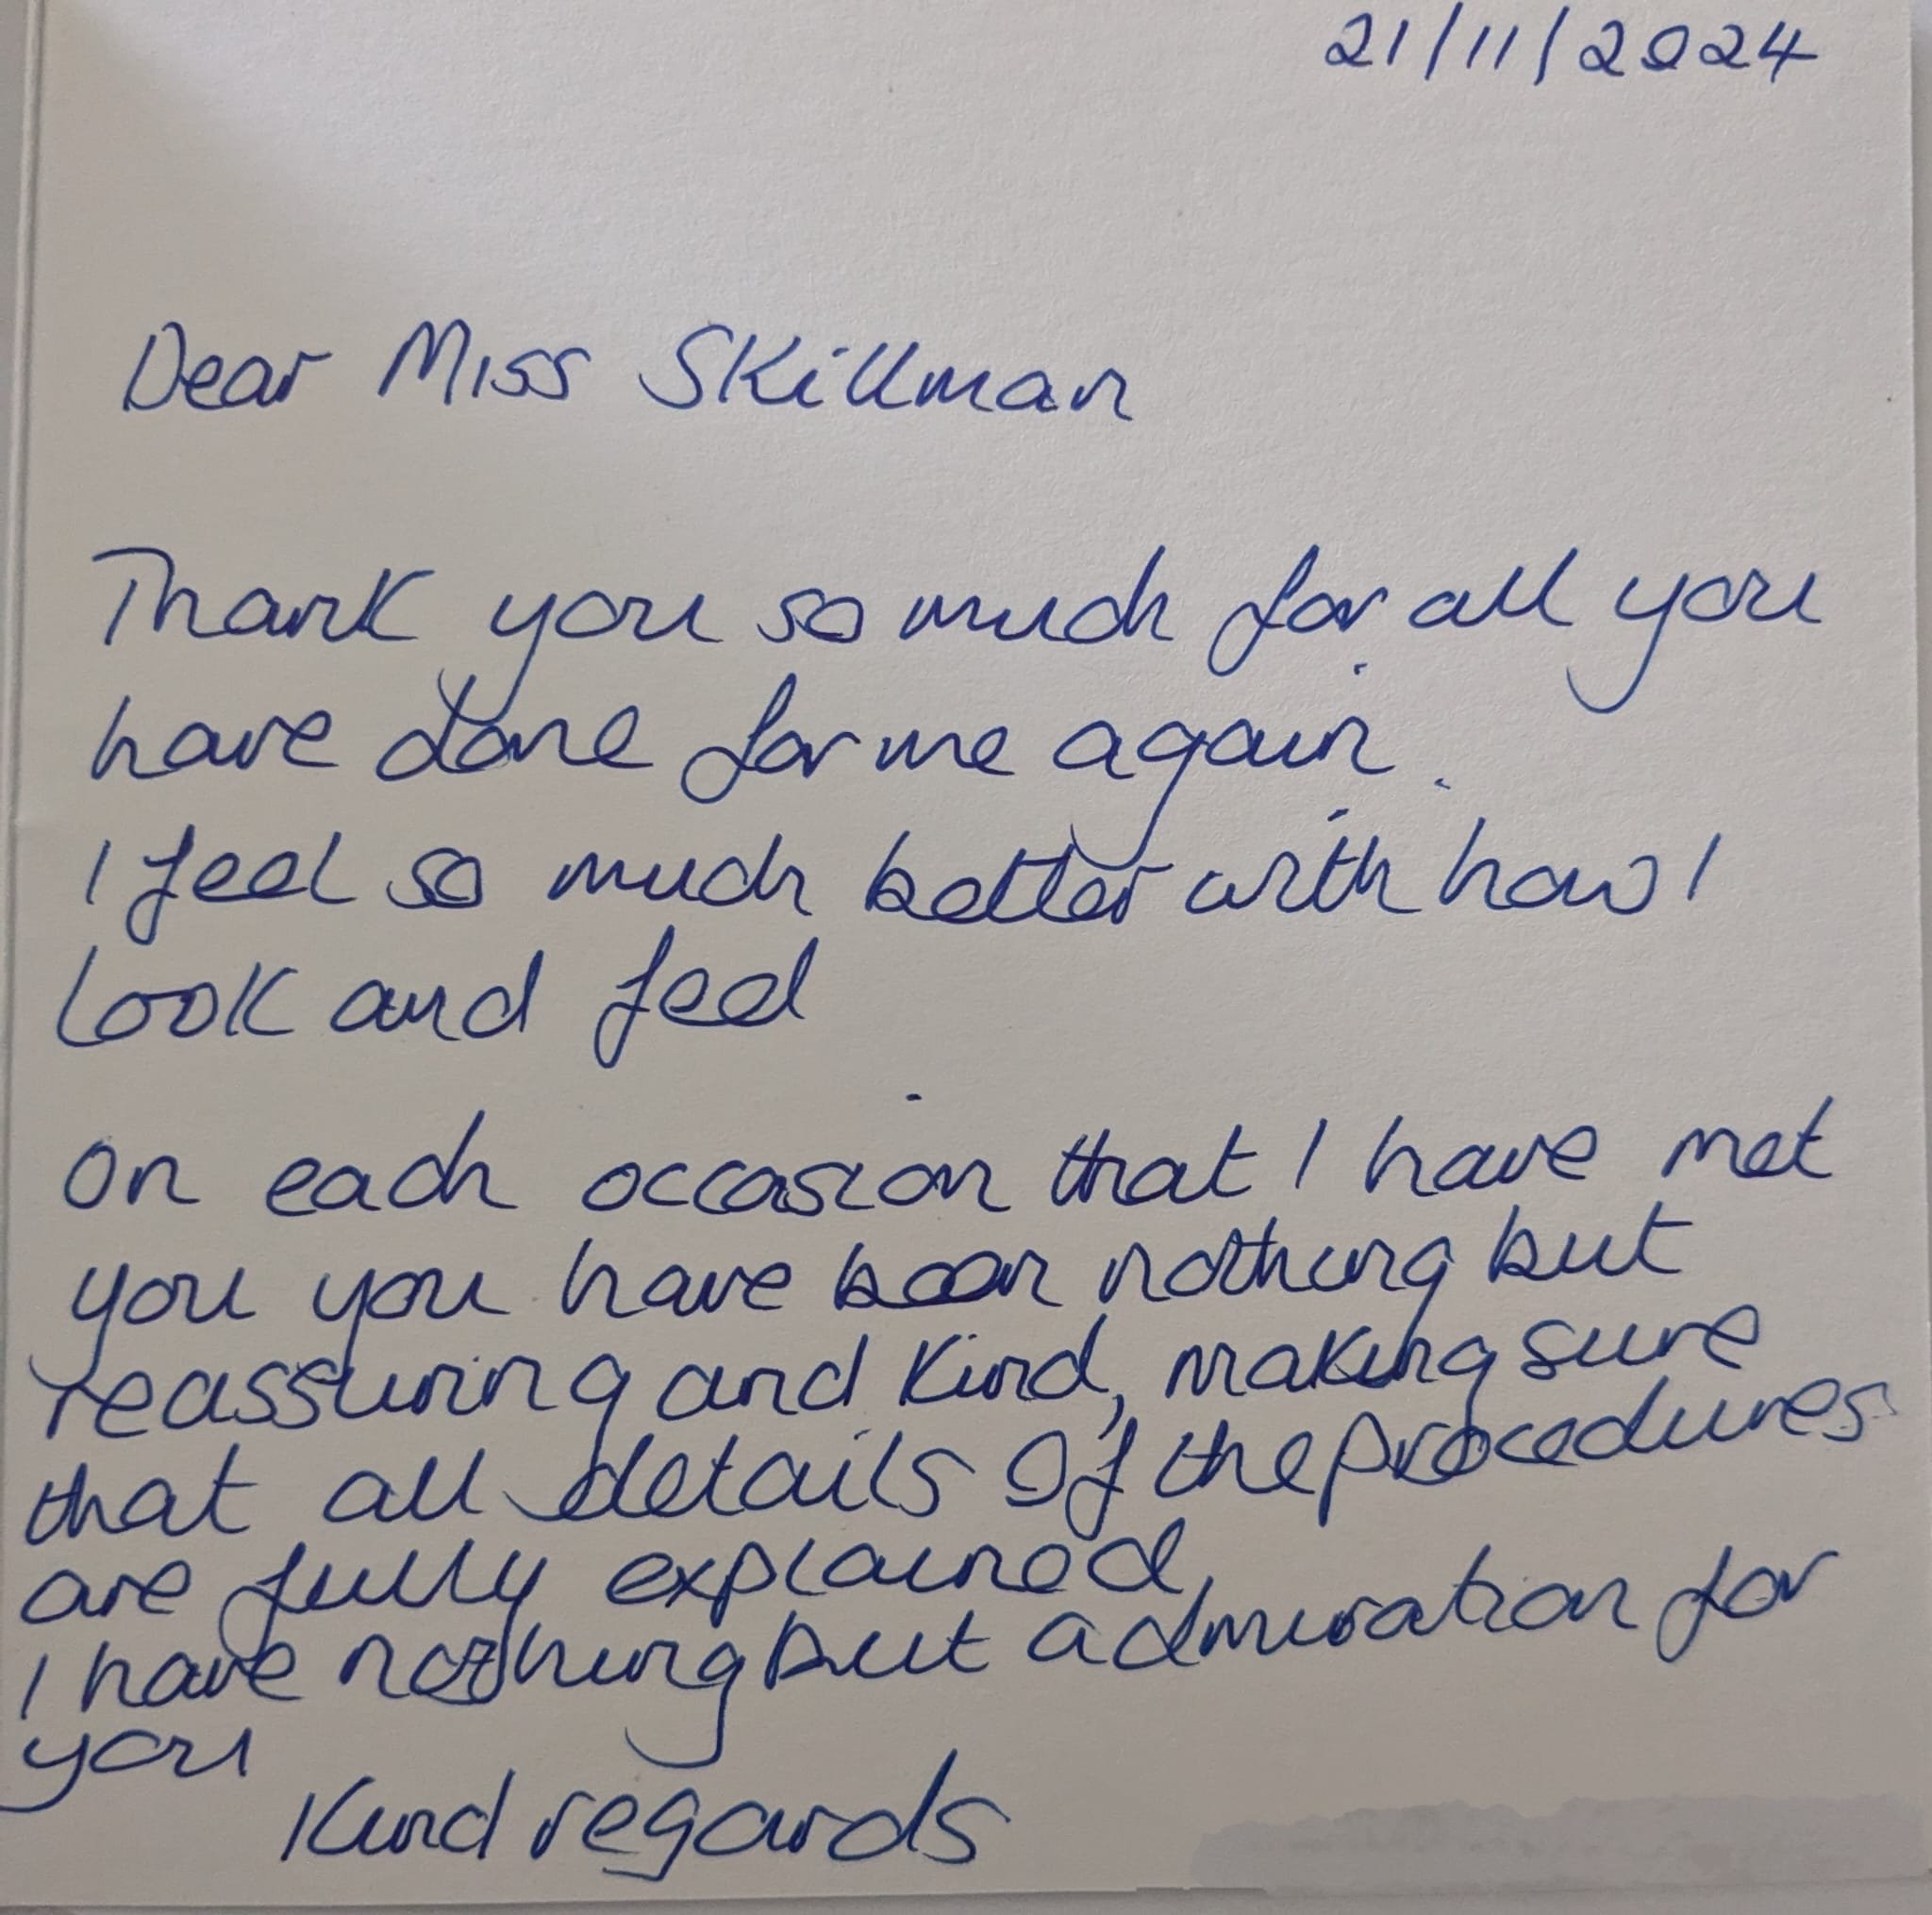 21/11/2024
Dear Miss Skillman
Thank you so much for all you
have done for me again.
I feel so much better with how I
look and feel
On each occasion that I have met
you you have been nothing but
reassuring and kind, making sure
that all details of the procedures
are fully explained,
I have nothing but admiration for
you
Kind regards